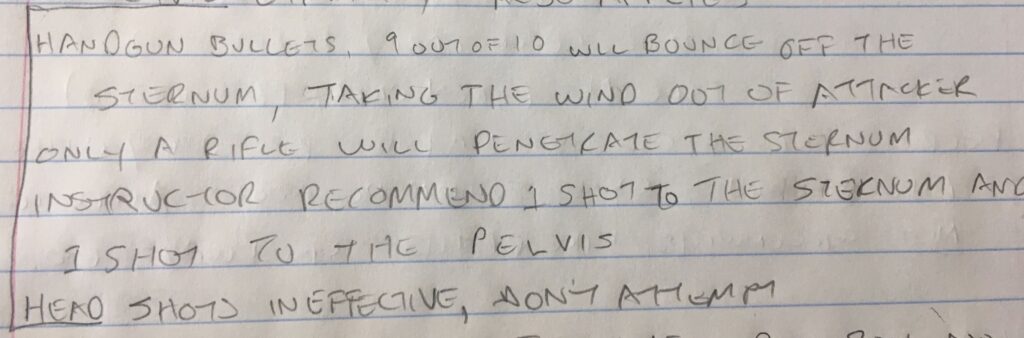 HANDGUN BULLETS, 9 OUT OF 10 WILL BOUNCE OFF THE
STERNUM, TAKING THE WIND OUT OF ATTACKER
ONLY A RIFLE WILL PENETRATE THE STERNUM
INSTRUCTOR RECOMMEND 1 SHOT TO THE STERNUM AND
1 SHOT TO THE PELVIS
HEAD SHOTS INEFFECTIVE, DON'T ATTEMPT